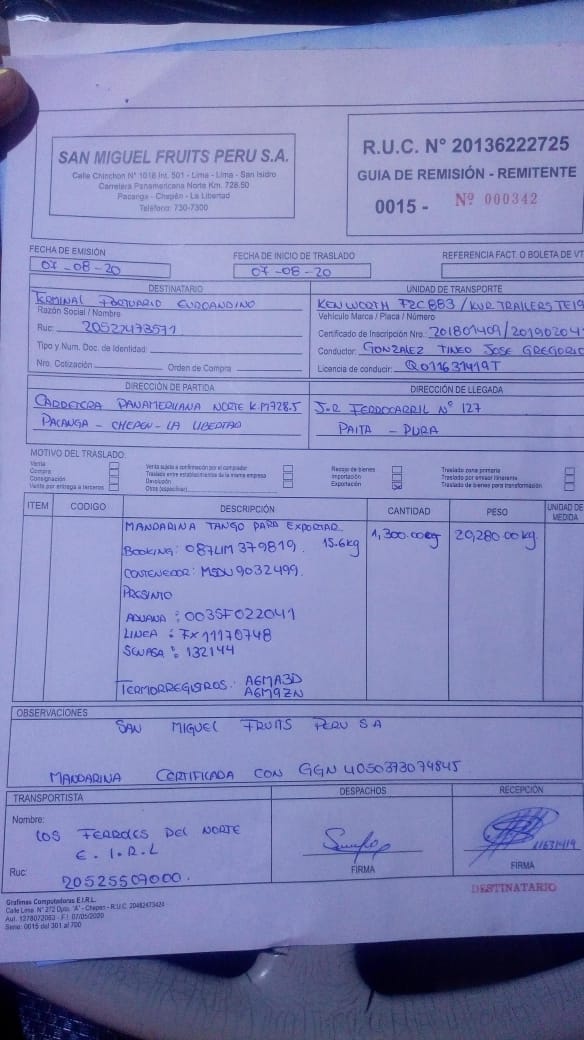 SAN MIGUEL FRUITS PERU S.A.
Calle Chinchon N° 1018 Int. 501 - Lima - Lima - San Isidro
Carretera Panamericana Norte Km. 728.50
Pacanga - Chepén - La Libertad
Teléfono: 730-7300
R.U.C. N° 20136222725
GUIA DE REMISIÓN - REMITENTE
0015 - Nº 000342
FECHA DE EMISIÓN
07-08-20
FECHA DE INICIO DE TRASLADO
07-08-20
REFERENCIA FACT. O BOLETA DE VT
DESTINATARIO
TERMINAL PORTUARIO EUROANDINO
Razón Social / Nombre
Ruc: 20522473571
Tipo y Num. Doc. de Identidad:
Nro. Cotización: Orden de Compra
UNIDAD DE TRANSPORTE
KENWORTH F2C883 / KUR TRAILERS
Vehículo Marca / Placa / Número
Certificado de Inscripción Nro. 201801409/20190204
Conductor: GONZALEZ TINEO JOSE GREGORIO
Licencia de conducir: Q011631419T
DIRECCIÓN DE PARTIDA
CARRETERA PANAMERICANA NORTE K.M728.5
PACANGA - CHEPEN - LA LIBERTAD
DIRECCIÓN DE LLEGADA
J.R FERROCARRIL N° 127
PAITA - PIURA
MOTIVO DEL TRASLADO:
Venta
Compra
Consignación
Venta por entrega a terceros
Venta sujeta a confirmación por el comprador
Traslado entre establecimientos de la misma empresa
Devolución
Otros (especificar)
Recojo de bienes
Importación
Exportación
Traslado zona primaria
Traslado por emisor itinerante
Traslado de bienes para transformación
ITEM CODIGO DESCRIPCIÓN CANTIDAD PESO UNIDAD DE MEDIDA
MANDARINA TANGO PARA EXPORTAR 1,300.00 20,280.00 kg
BOOKING: 087LIM379819. 15.6kg
CONTENEDOR: MSDU 9032499.
PRESINTO
ADUANA : 003SF022041
LINEA : FX11170748
SENASA : 132144
TERMORREGISTROS: A6MA3D
A6M9ZN
OBSERVACIONES
SAN MIGUEL FRUITS PERU S A
MANDARINA CERTIFICADA CON GGN 4050373074845
TRANSPORTISTA
Nombre:
LOS FERROLES DEL NORTE
E.I.R.L
Ruc: 20525507000.
DESPACHOS
FIRMA
RECEPCIÓN
11631419
FIRMA
DESTINATARIO
Grafimas Computadoras E.I.R.L.
Calle Lima N° 272 Dpto. "A" - Chepen - R.U.C. 20482473424
Aut. 1278072063 - F.I. 07/05/2020
Serie: 0015 del 301 al 700